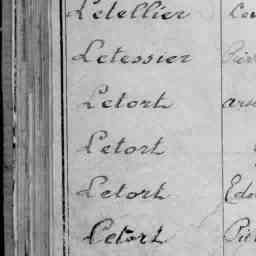 Letellier
Letessier
Letort
Letort
Letort
Letort